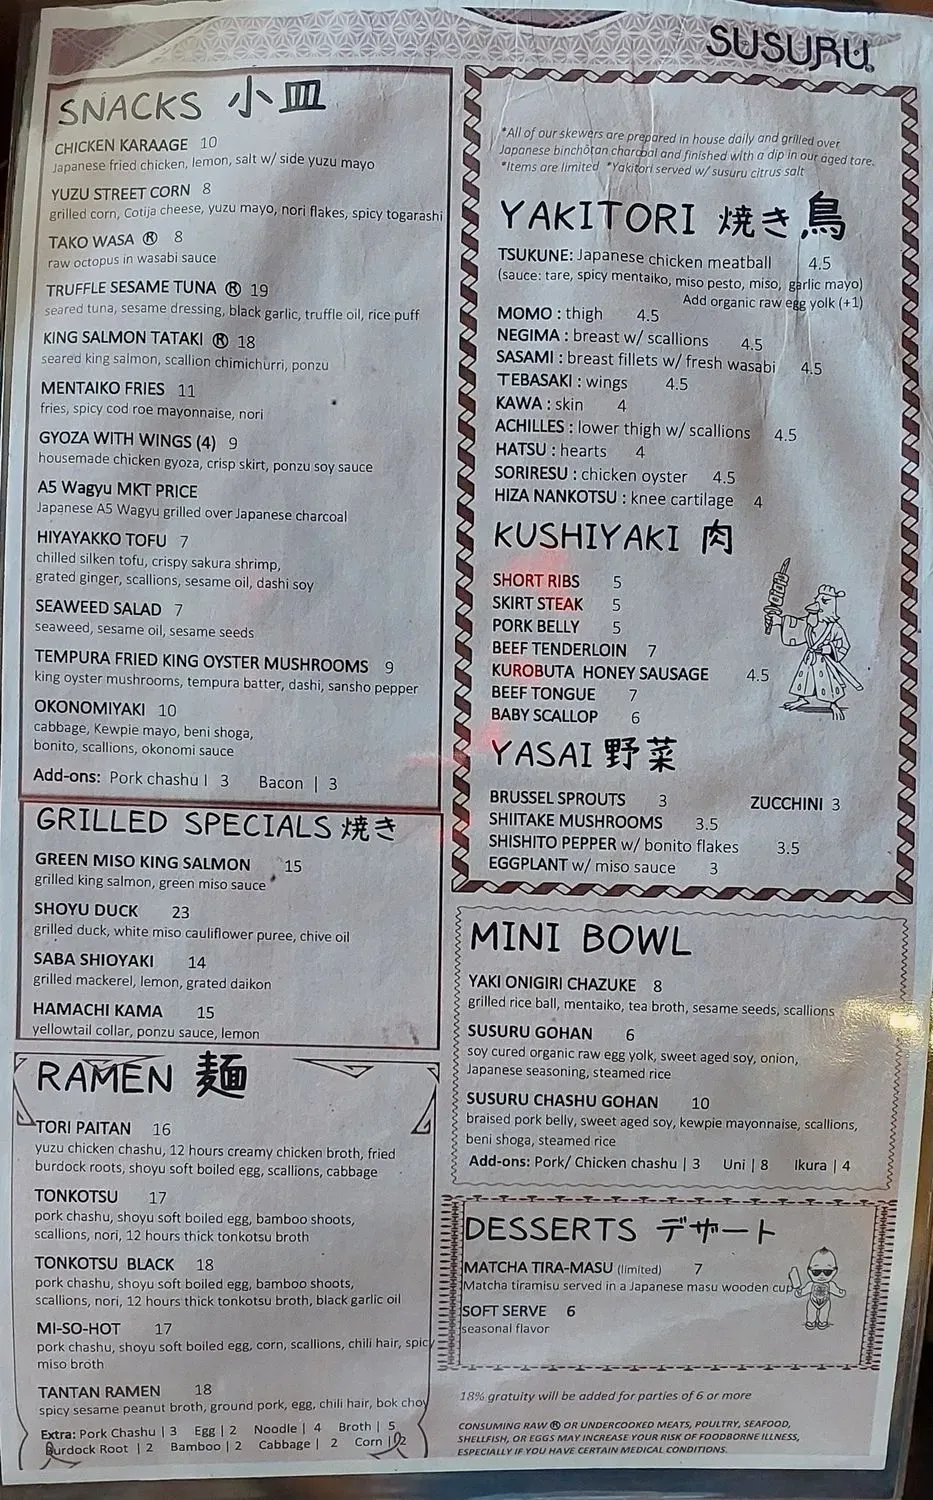 SUSURU®
SNACKS 小皿
CHICKEN KARAAGE 10
Japanese fried chicken, lemon, salt w/ side yuzu mayo
YUZU STREET CORN 8
grilled corn, Cotija cheese, yuzu mayo, nori flakes, spicy togarashi
TAKO WASA ® 8
raw octopus in wasabi sauce
TRUFFLE SESAME TUNA ® 19
seared tuna, sesame dressing, black garlic, truffle oil, rice puff
KING SALMON TATAKI ® 18
seared king salmon, scallion chimichurri, ponzu
MENTAIKO FRIES 11
fries, spicy cod roe mayonnaise, nori
GYOZA WITH WINGS (4) 9
housemade chicken gyoza, crisp skirt, ponzu soy sauce
A5 Wagyu MKT PRICE
Japanese A5 Wagyu grilled over Japanese charcoal
HIYAYAKKO TOFU 7
chilled silken tofu, crispy sakura shrimp,
grated ginger, scallions, sesame oil, dashi soy
SEAWEED SALAD 7
seaweed, sesame oil, sesame seeds
TEMPURA FRIED KING OYSTER MUSHROOMS 9
king oyster mushrooms, tempura batter, dashi, sansho pepper
OKONOMIYAKI 10
cabbage, Kewpie mayo, beni shoga,
bonito, scallions, okonomi sauce
Add-ons: Pork chashu | 3 Bacon | 3
GRILLED SPECIALS 焼き
GREEN MISO KING SALMON 15
grilled king salmon, green miso sauce
SHOYU DUCK 23
grilled duck, white miso cauliflower puree, chive oil
SABA SHIOYAKI 14
grilled mackerel, lemon, grated daikon
HAMACHI KAMA 15
yellowtail collar, ponzu sauce, lemon
RAMEN 麺
TORI PAITAN 16
yuzu chicken chashu, 12 hours creamy chicken broth, fried
burdock roots, shoyu soft boiled egg, scallions, cabbage
TONKOTSU 17
pork chashu, shoyu soft boiled egg, bamboo shoots,
scallions, nori, 12 hours thick tonkotsu broth
TONKOTSU BLACK 18
pork chashu, shoyu soft boiled egg, bamboo shoots,
scallions, nori, 12 hours thick tonkotsu broth, black garlic oil
MI-SO-HOT 17
pork chashu, shoyu soft boiled egg, corn, scallions, chili hair, spicy
miso broth
TANTAN RAMEN 18
spicy sesame peanut broth, ground pork, egg, chili hair, bok choy
Extra: Pork Chashu | 3 Egg | 2 Noodle | 4 Broth | 5
Burdock Root | 2 Bamboo | 2 Cabbage | 2 Corn | 2
*All of our skewers are prepared in house daily and grilled over
Japanese binchōtan charcoal and finished with a dip in our aged tare.
*Items are limited *Yakitori served w/ susuru citrus salt
YAKITORI 焼き鳥
TSUKUNE: Japanese chicken meatball 4.5
(sauce: tare, spicy mentaiko, miso pesto, miso, garlic mayo)
Add organic raw egg yolk (+1)
MOMO : thigh 4.5
NEGIMA : breast w/ scallions 4.5
SASAMI : breast fillets w/ fresh wasabi 4.5
TEBASAKI : wings 4.5
KAWA : skin 4
ACHILLES : lower thigh w/ scallions 4.5
HATSU : hearts 4
SORIRESU : chicken oyster 4.5
HIZA NANKOTSU : knee cartilage 4
KUSHIYAKI 肉
SHORT RIBS 5
SKIRT STEAK 5
PORK BELLY 5
BEEF TENDERLOIN 7
KUROBUTA HONEY SAUSAGE 4.5
BEEF TONGUE 7
BABY SCALLOP 6
YASAI 野菜
BRUSSEL SPROUTS 3 ZUCCHINI 3
SHIITAKE MUSHROOMS 3.5
SHISHITO PEPPER w/ bonito flakes 3.5
EGGPLANT w/ miso sauce 3
MINI BOWL
YAKI ONIGIRI CHAZUKE 8
grilled rice ball, mentaiko, tea broth, sesame seeds, scallions
SUSURU GOHAN 6
soy cured organic raw egg yolk, sweet aged soy, onion,
Japanese seasoning, steamed rice
SUSURU CHASHU GOHAN 10
braised pork belly, sweet aged soy, kewpie mayonnaise, scallions,
beni shoga, steamed rice
Add-ons: Pork/ Chicken chashu | 3 Uni | 8 Ikura | 4
DESSERTS デザート
MATCHA TIRA-MASU (limited) 7
Matcha tiramisu served in a Japanese masu wooden cup
SOFT SERVE 6
seasonal flavor
18% gratuity will be added for parties of 6 or more
CONSUMING RAW ® OR UNDERCOOKED MEATS, POULTRY, SEAFOOD,
SHELLFISH, OR EGGS MAY INCREASE YOUR RISK OF FOODBORNE ILLNESS,
ESPECIALLY IF YOU HAVE CERTAIN MEDICAL CONDITIONS.